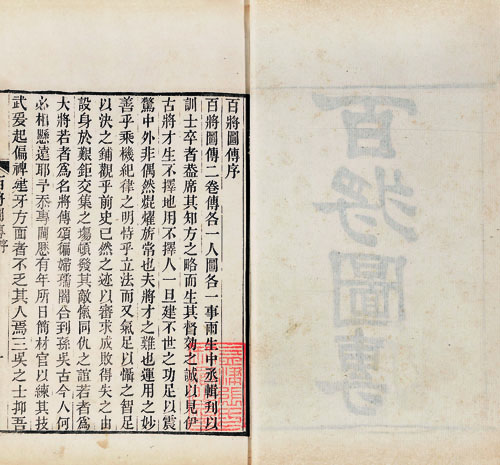 百將圖傳
百將圖傳序
百將圖傳二卷傳各一人圖各一事雨生中丞輯刋以
訓士卒者盡席其知方之略而生其督効之誠以見伊
古將才生不擇地用不擇人一旦建不世之功足以震
驚中外非偶然焜燿旂常也夫將才之難也運用之妙
善乎乘機紀律之明恃乎立法而又氣足以懾之智足
以決之鋪觀乎前史已然之迹以審求成敗得失之由
設身於艱鉅交集之塲頓發其敵愾同仇之誼若者爲
大將若者爲名將傳須徧婦孺闔合到孫吳古今人何
必相懸遠耶予忝專閫歷有年所日簡材官以練其技
武爰起偏裨建牙方面者不乏其人焉三吳之士抑吾